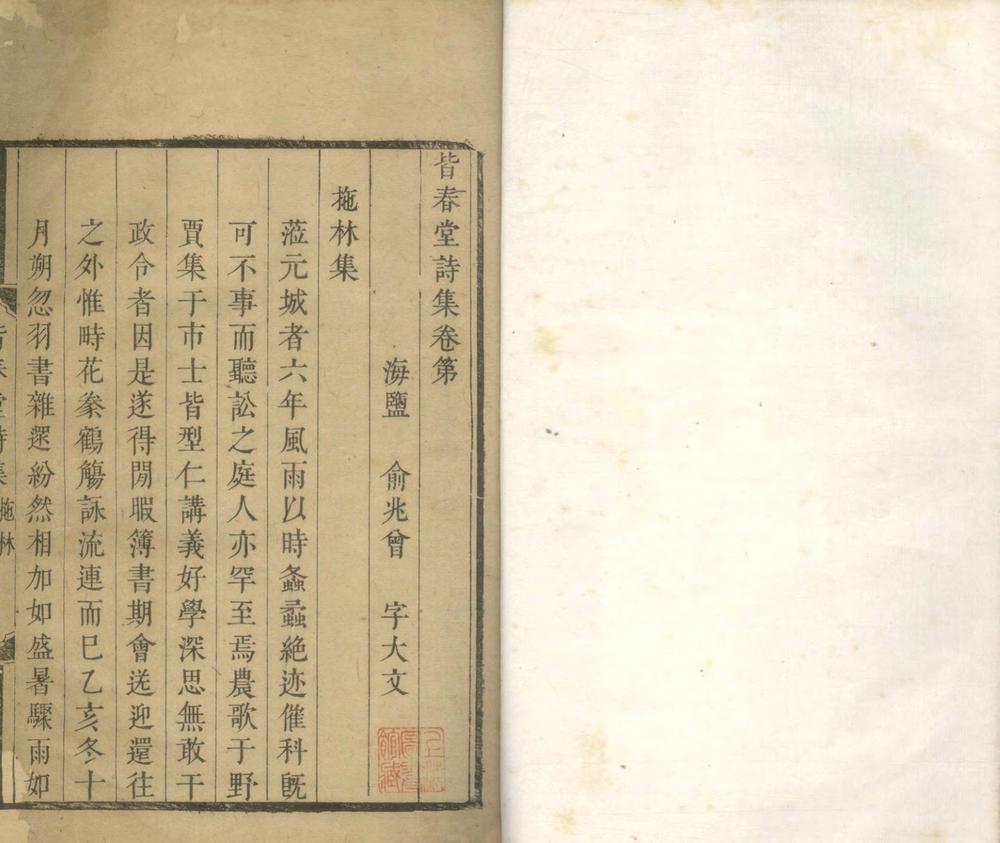 皆春堂詩集卷第
海鹽 俞兆曾 字大文
拖林集
蒞元城者六年風雨以時螽蟊絶迹催科既
可不事而聽訟之庭人亦罕至焉農歌于野
賈集于市士皆型仁講義好學深思無敢干
政令者因是遂得閒暇簿書期會送迎還往
之外惟時花豢鶴觴詠流連而已乙亥冬十
月朔忽羽書雜遝紛然相加如盛暑驟雨如
皆春堂詩集 拖林